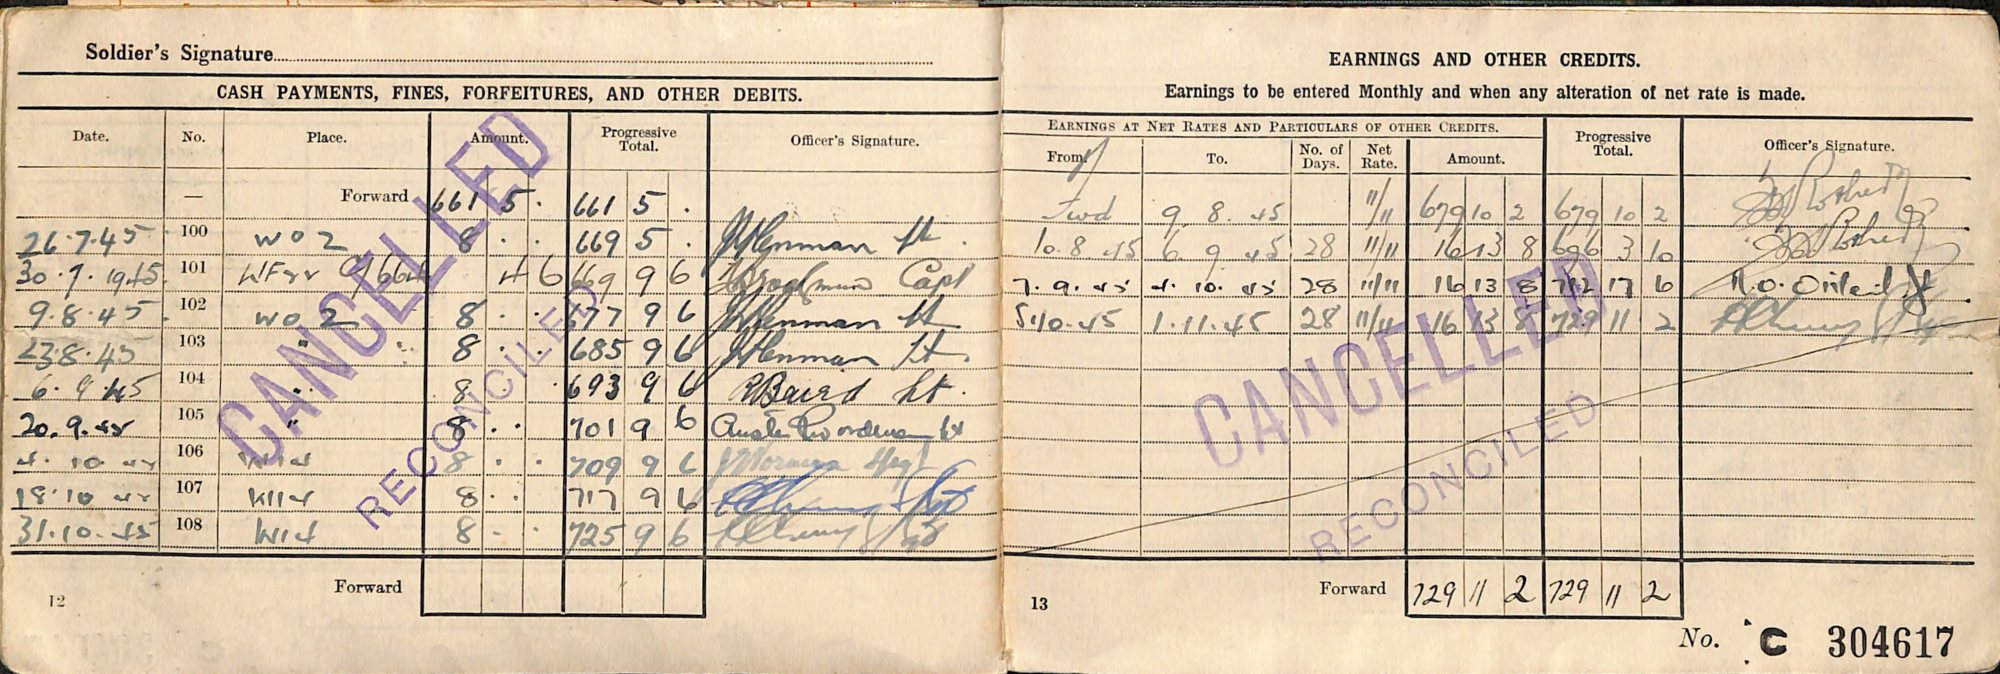 Soldier's Signature
CASH PAYMENTS, FINES, FORFEITURES, AND OTHER DEBITS.
Date. No. Place. Amount. Progressive Total. Officer's Signature.
— Forward 661 5 . 661 5 .
26.7.45 100 W O 2 8 . . 669 5 . Henman Lt
30.7.1945 101 9664 4 6 669 9 6 Capt
9.8.45 102 W O 2 8 . . 677 9 6 Henman Lt
23.8.45 103 " " 8 . . 685 9 6 Henman Lt.
6.9.45 104 " 8 . 693 9 6 R Baird Lt.
20.9.45 105 " 8 . . 701 9 6 Lt
4.10.45 106 8 . . 709 9 6
18.10.45 107 8 . . 717 9 6
31.10.45 108 8 . . 725 9 6
Forward
12
CANCELLED
RECONCILED
EARNINGS AND OTHER CREDITS.
Earnings to be entered Monthly and when any alteration of net rate is made.
EARNINGS AT NET RATES AND PARTICULARS OF OTHER CREDITS. Progressive Total. Officer's Signature.
From. To. No. of Days. Net Rate. Amount.
Fwd 9 8 45 11/11 679 10 2 679 10 2
10.8.45 6 9 45 28 11/11 16 13 8 696 3 10
7.9.45 4.10.45 28 11/11 16 13 8 712 17 6
5.10.45 1.11.45 28 11/11 16 13 8 729 11 2
CANCELLED
RECONCILED
Forward 729 11 2 729 11 2
13
No. C 304617